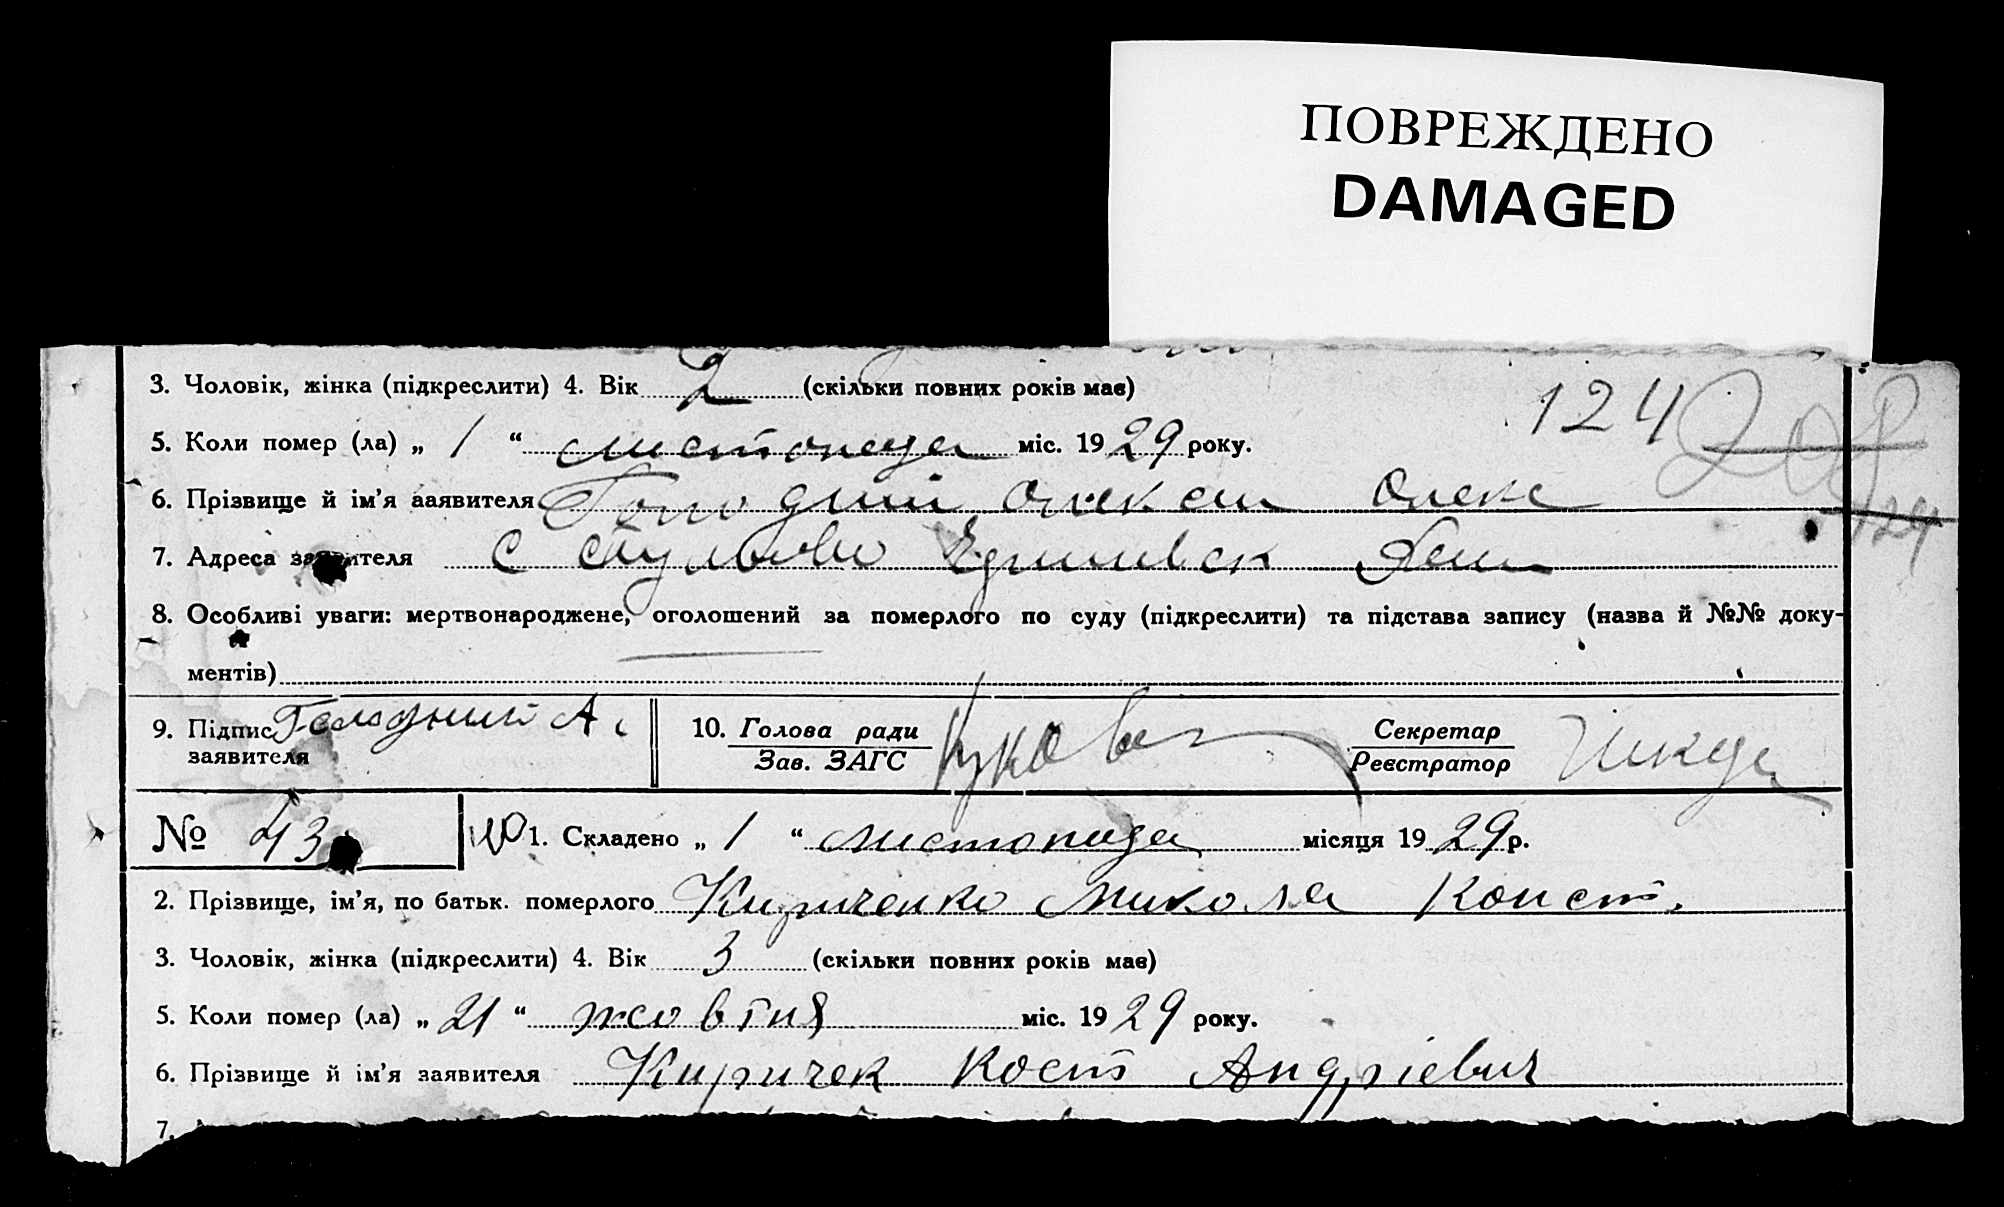 ПОВРЕЖДЕНО
DAMAGED
3. Чоловік, жінка (підкреслити) 4. Вік 2 (скільки повних років має)
124
5. Коли помер (ла) „ 1 “ листопада міс. 19 29 року.
6. Прізвище й ім'я заявителя Голодний Олекси Олекс
124
7. Адреса заявителя С
8. Особливі уваги: мертвонароджене, оголошений за померлого по суду (підкреслити) та підстава запису (назва й №№ доку-
ментів)
9. Підпис заявителя Голодний А.
10. Голова ради
Зав. ЗАГС
Секретар
Реєстратор
№ 43
1. Складено „ 1 “ листопада місяця 19 29 р.
2. Прізвище, ім'я, по батьк. померлого Кириченко Микола Конст.
3. Чоловік, жінка (підкреслити) 4. Вік 3 (скільки повних років має)
5. Коли помер (ла) „ 21 “ жовтня міс. 19 29 року.
6. Прізвище й ім'я заявителя Киричек Кост Андрієвич
7.